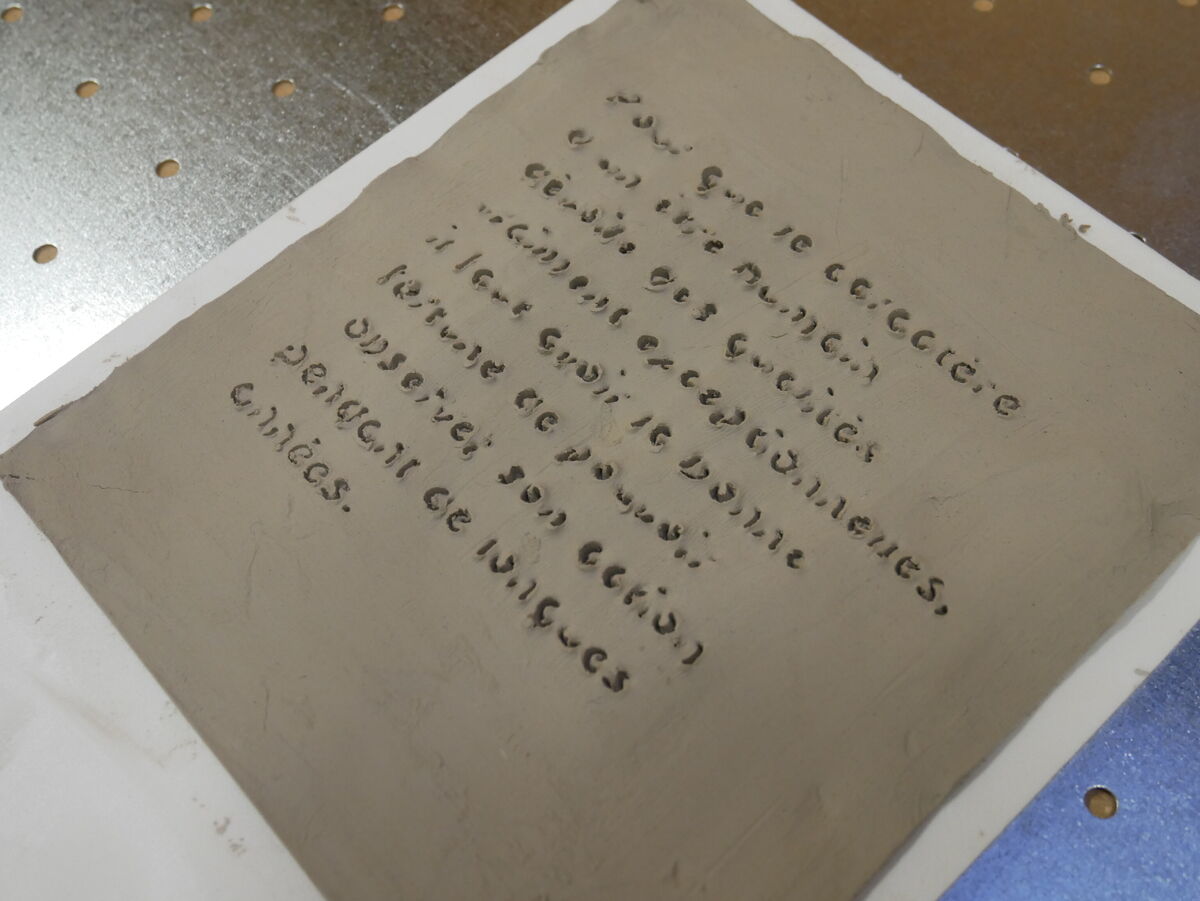 Pour que le caractère
d'un être humain
dévoile des qualités
vraiment exceptionnelles,
il faut avoir la bonne
fortune de pouvoir
observer son action
pendant de longues
années.